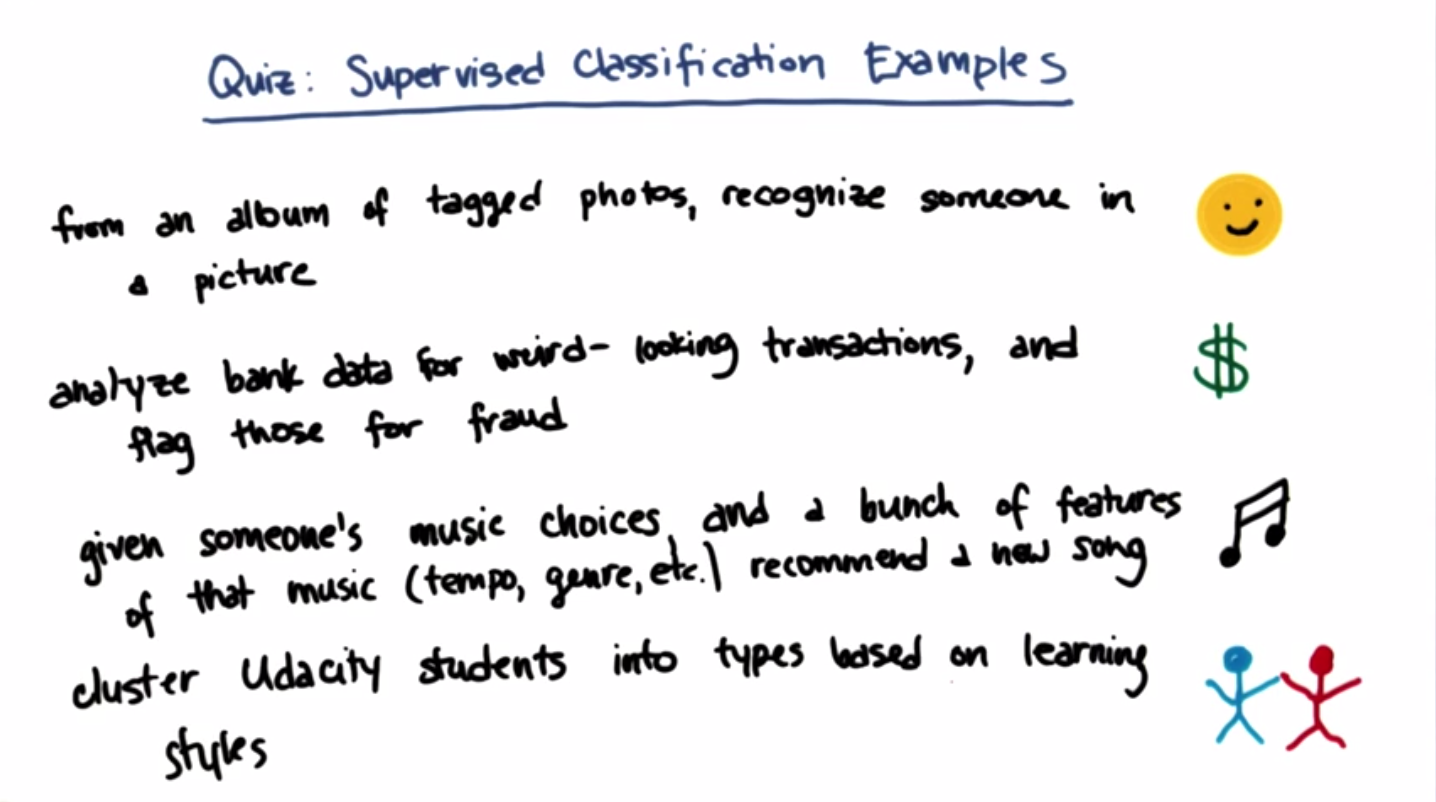 Quiz: Supervised Classification Examples
from an album of tagged photos, recognize someone in
a picture
analyze bank data for weird-looking transactions, and
flag those for fraud
given someone's music choices, and a bunch of features
of that music (tempo, genre, etc.) recommend a new song
cluster Udacity students into types based on learning
styles
$